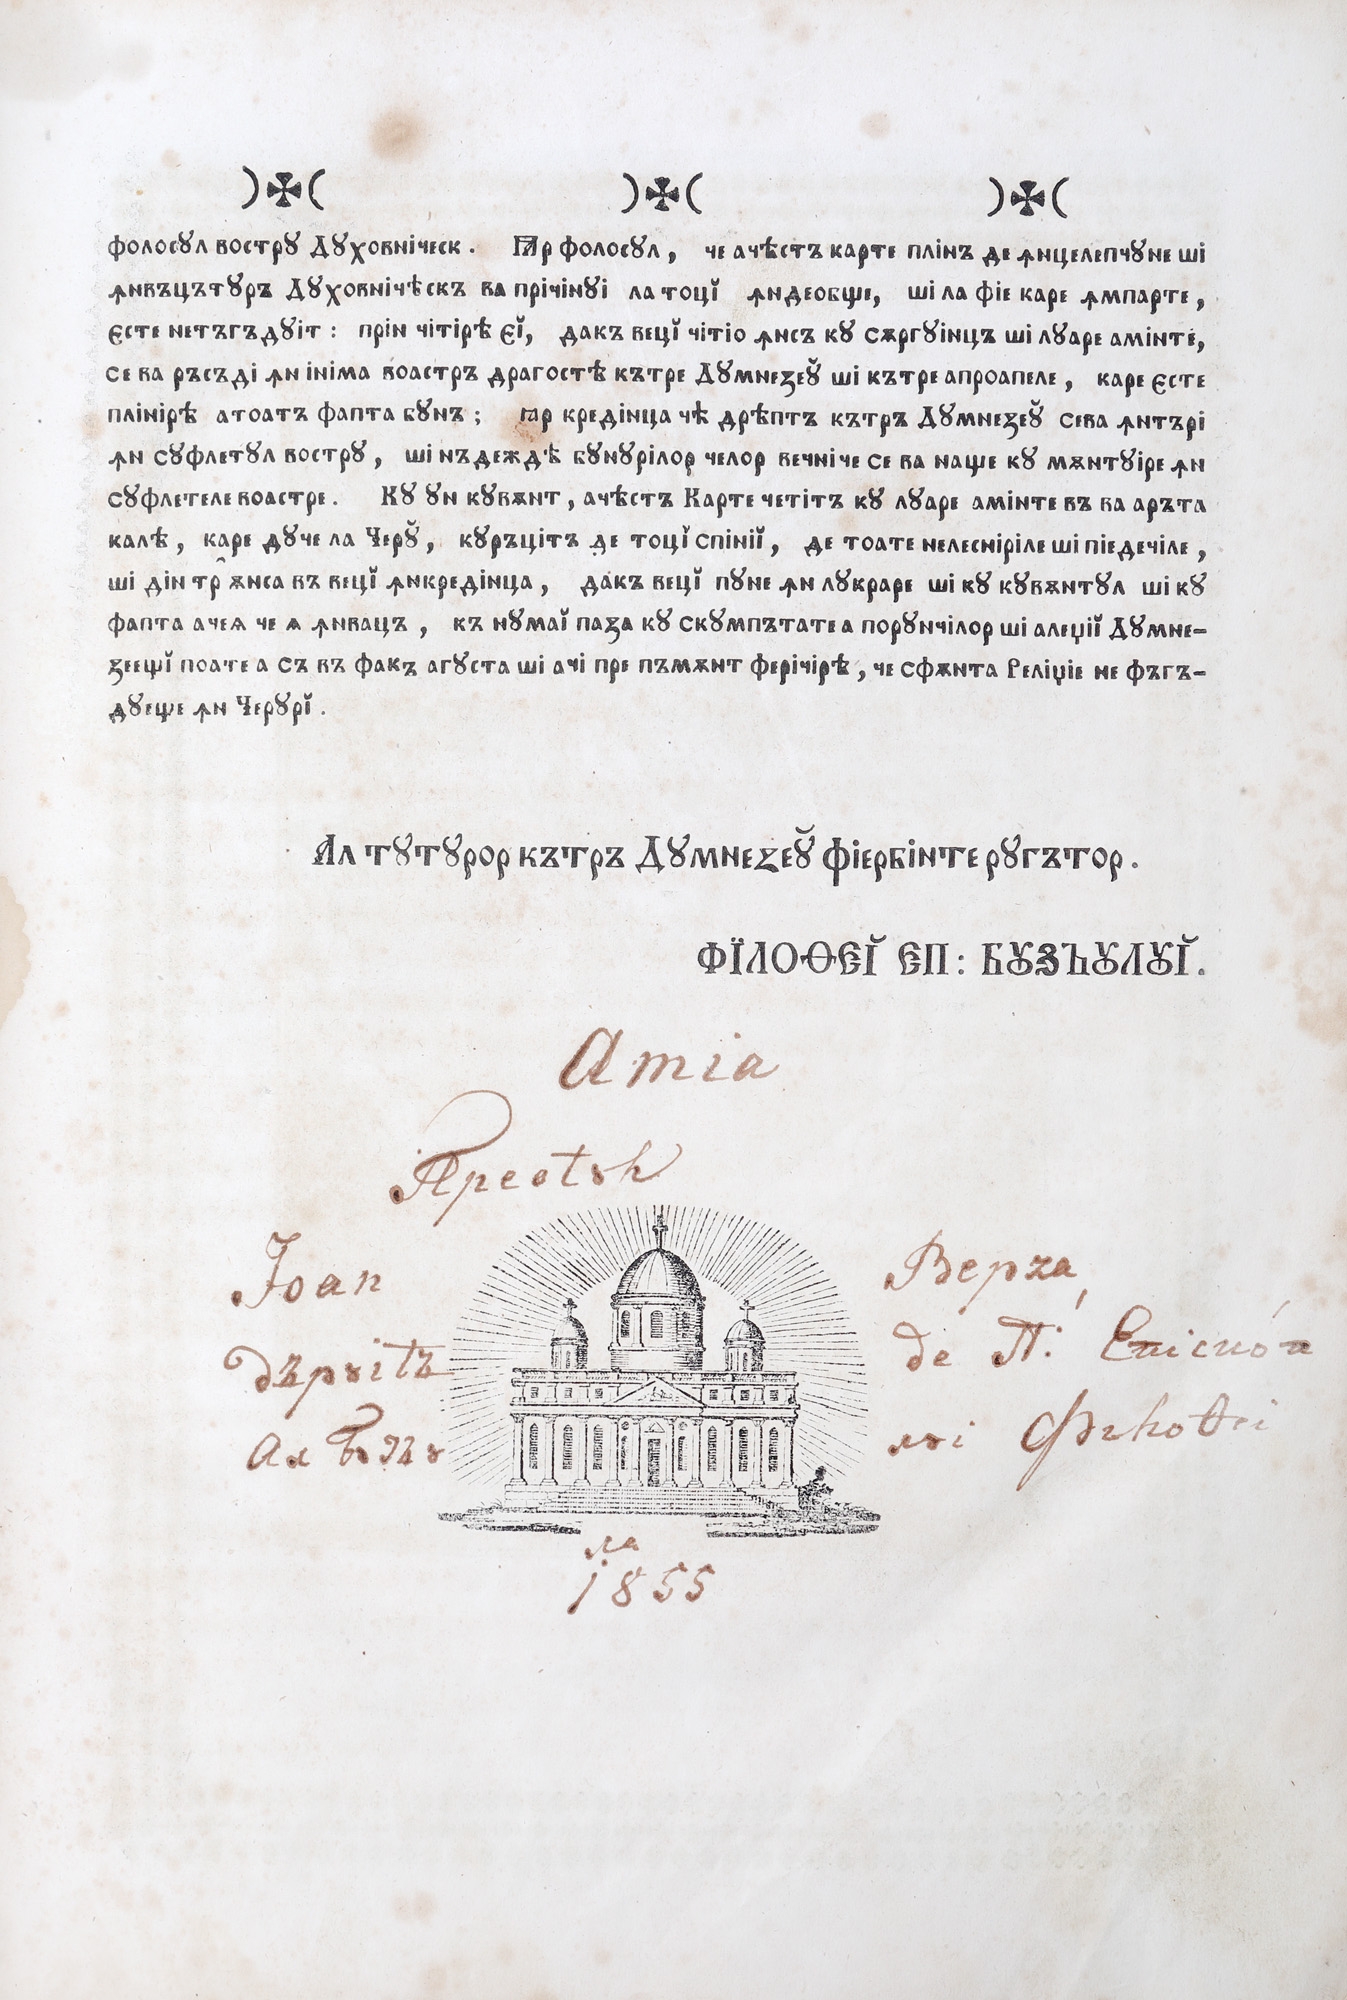 )✠( )✠( )✠(
фолосꙋл вострꙋ Дꙋховнїческ. Ꙗр фолосꙋл, че ачѣстъ карте плінъ де ꙟнцелепчꙋне ші
ꙟнвъцътꙋръ Дꙋховнічѣскъ ва прічінꙋі ла тоцй ꙟндеобще, ші ла фіе каре ꙟмпарте,
єсте нетъгъдꙋіт: прін чітірѣ єй, дакъ вецй чітіо ꙟнсъ кꙋ сѫргꙋінцъ ші лꙋаре амінте,
се ва ръсъді ꙟнініма воастръ драгостѣ кътре Дꙋмнезеꙋ̆ ші кътре апроапеле, каре єсте
плінірѣ атоатъ фапта бꙋнъ; ꙗр кредінца чѣ дрѣптъ кътръ Дꙋмнезеꙋ̆ сева ꙟнтърі
ꙟн сꙋфлетꙋл вострꙋ, ші нъдеждѣ бꙋнꙋрілор челор вечніче се ва наще кꙋ мѫнтꙋіре ꙟн
сꙋфлетеле воастре. Кꙋ ꙋн кꙋвѫнт, ачѣстъ Карте четітъ кꙋ лꙋаре амінте въ ва аръта
калѣ, каре дꙋче ла Черꙋ̆, кꙋръцітъ де тоцй спінїй, де тоате нелесніріле ші піедечіле,
ші дін тр̑ ѫнса въ вецй ꙟнкредінца, дакъ вецй пꙋне ꙟн лꙋкраре ші кꙋ кꙋвѫнтꙋл ші кꙋ
фапта ачеѧ че ѧ ꙟнвацъ, къ нꙋмай паза кꙋ скꙋмпътате а порꙋнчілор ші алеџїй Дꙋмне-
зеещй поате а съ въ факъ агꙋста ші ачі пре пъмѫнт ферічірѣ, че сфѫнта Реліџіе не фъгъ-
дꙋеще ꙟн Черꙋрй.
Ал тꙋтꙋрор кътръ Дꙋмнезеꙋ̆ фіербінте рꙋгътор.
ФЇЛОѲЄЙ ЄП: БꙊЗЪꙊЛꙊЙ.
Amia
Преотꙋл
Ioan Верza,
дърꙋітъ де П: Епіскóп
ал Бꙋзъꙋ лꙋі Філоѳеі
ла
1855